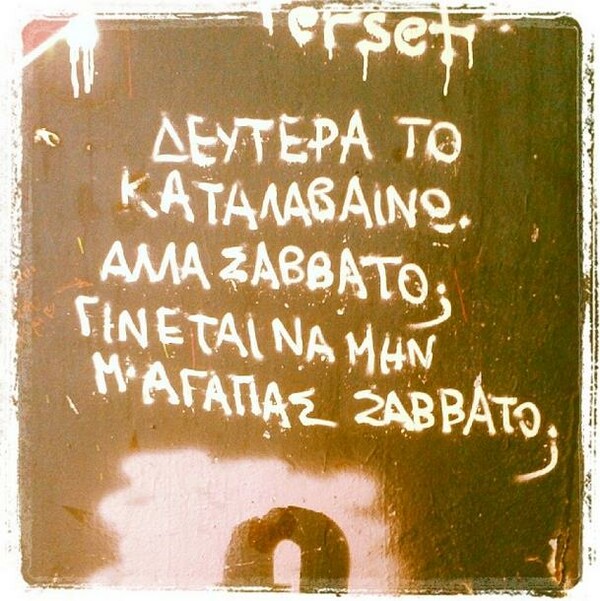 ΔΕΥΤΕΡΑ ΤΟ
ΚΑΤΑΛΑΒΑΙΝΩ.
ΑΜΑ ΣΑΒΒΑΤΟ;
ΓΙΝΕΤΑΙ ΝΑ ΜΗΝ
Μ'ΑΓΑΠΑΣ ΣΑΒΒΑΤΟ;